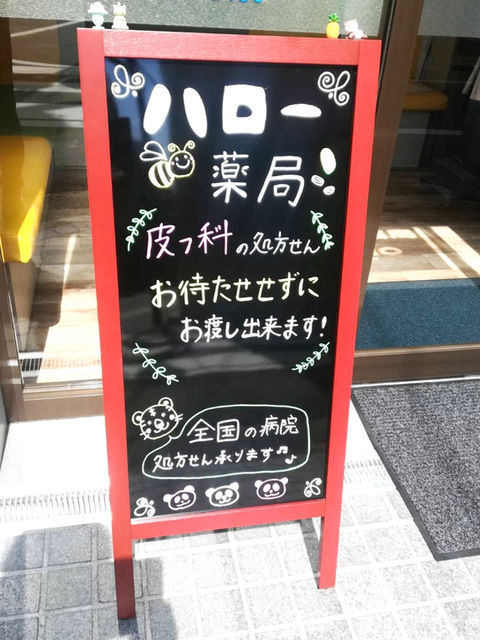 ハロー
薬局
皮フ科の処方せん
お待たせせずに
お渡し出来ます!
全国の病院
処方せん承ります♫♪